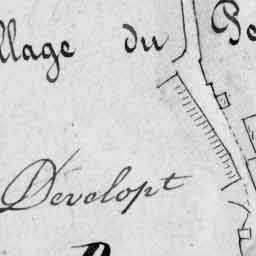 llage du Pe
Developt